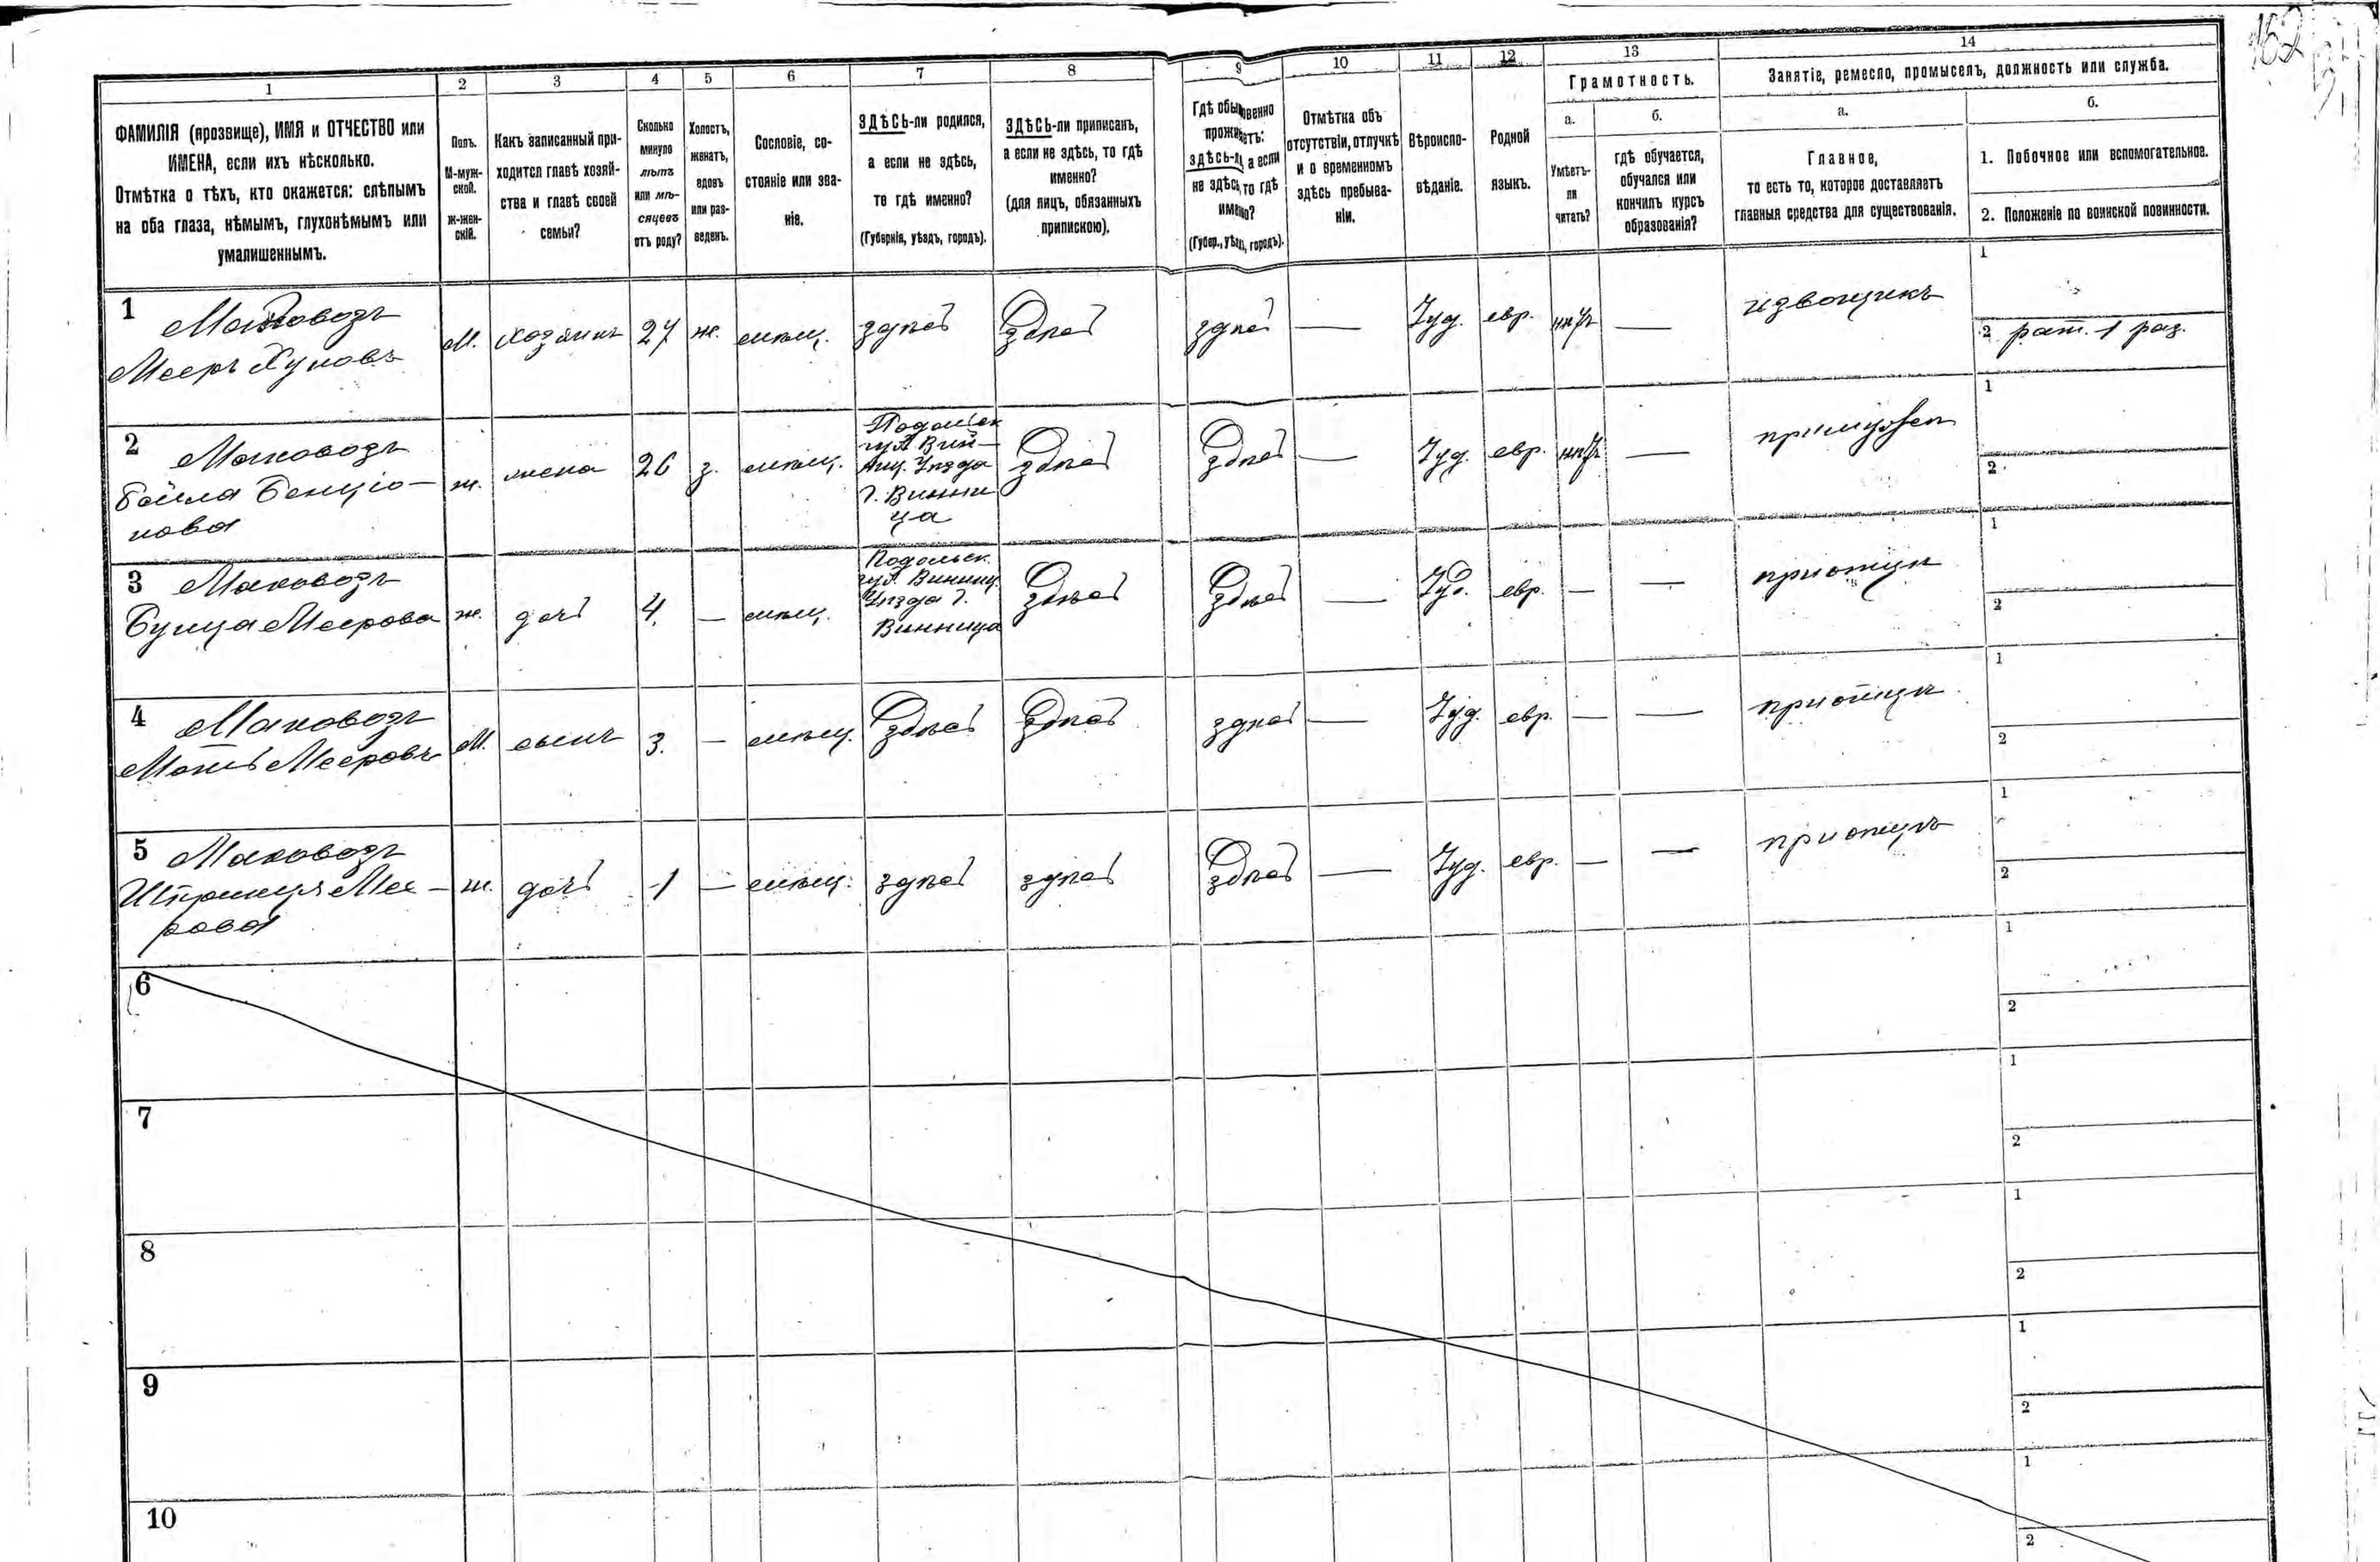 162
1
2
3
4
5
6
7
8
9
10
11
12
13
14
ФАМИЛІЯ (прозвище), ИМЯ и ОТЧЕСТВО или
ИМЕНА, если ихъ нѣсколько.
Отмѣтка о тѣхъ, кто окажется: слѣпымъ
на оба глаза, нѣмымъ, глухонѣмымъ или
умалишеннымъ.
Полъ.
М-муж-
ской.
Ж-жен-
скій.
Какъ записанный при-
ходится главѣ хозяй-
ства и главѣ своей
семьи?
Сколько
минуло
лѣтъ
или мѣ-
сяцевъ
отъ роду?
Холостъ,
женатъ,
вдовъ
или раз-
веденъ.
Сословіе, со-
стояніе или зва-
ніе.
ЗДѢСЬ-ли родился,
а если не здѣсь,
то гдѣ именно?
(Губернія, уѣздъ, городъ).
ЗДѢСЬ-ли приписанъ,
а если не здѣсь, то гдѣ
именно?
(для лицъ, обязанныхъ
припискою).
Гдѣ обыкновенно
проживаетъ:
здѣсь-ли, а если
не здѣсь, то гдѣ
именно?
(Губер., уѣздъ, городъ).
Отмѣтка объ
отсутствіи, отлучкѣ
и о временномъ
здѣсь пребыва-
ніи.
Вѣроиспо-
вѣданіе.
Родной
языкъ.
Грамотность.
а.
Умѣетъ-
ли
читать?
б.
гдѣ обучается,
обучался или
кончилъ курсъ
образованія?
Занятіе, ремесло, промыселъ, должность или служба.
а.
Главное,
то есть то, которое доставляетъ
главныя средства для существованія.
б.
1. Побочное или вспомогательное.
2. Положеніе по воинской повинности.
1 Маховозъ М. хозяинъ 27 ж. мѣщ. здѣсь здѣсь здѣсь — Іуд. евр. нѣтъ — извощикъ 1
Мееръ 2 рат. 1 раз.
2 Маковозъ ж. жена 26 з. мѣщ. Подольск
губ. Вин-
ниц. Уѣзда
г. Винни
ца здѣсь здѣсь — Іуд. евр. нѣтъ — при мужѣ 1
Бейла Бенціо-
нова 2
3 Маковозъ ж. дочь 4. — мѣщ. Подольск.
губ. Винниц.
Уѣзда г.
Винница здѣсь здѣсь — Іуд. евр. — — при отцѣ 1
Меерова 2
4 Маковозъ М. сынъ 3. — мѣщ. здѣсь здѣсь здѣсь — Іуд. евр. — — при отцѣ 1
Мееровъ 2
5 Маковозъ ж. дочь 1 — мѣщ. здѣсь здѣсь здѣсь — Іуд. евр. — — при отцѣ 1
Мее-
рова 2
6 1
2
7 1
2
8 1
2
9 1
2
10 1
2